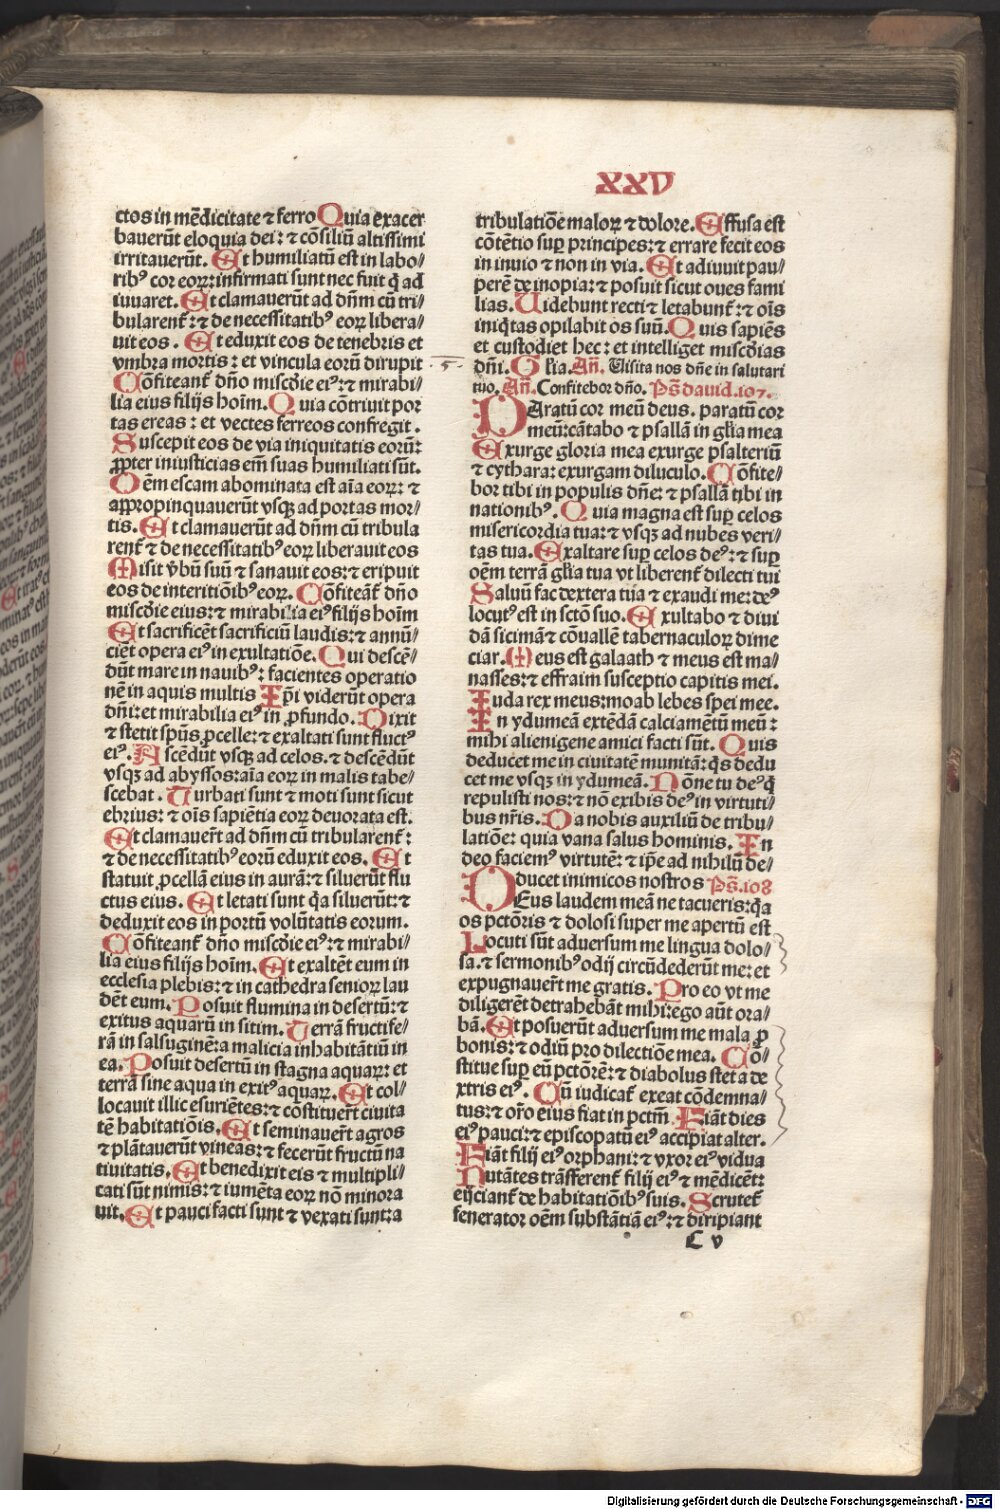 xxv
ctos in mēdicitate ⁊ ferro Quia exacer
bauerūt eloquia dei: ⁊ cōsiliū altissimi
irritauerūt. Et humiliatū est in labo⸗
ribꝰ cor eoꝝ: infirmati sunt nec fuit q̄ ad
iuuaret. Et clamauerūt ad dn̄m cū tri⸗
bularent᷑: ⁊ de necessitatibꝰ eoꝝ libera⸗
uit eos. Et eduxit eos de tenebris et
vmbra mortis: et vincula eorū dirupit
Cōfiteant᷑ dn̄o misc̄die eiꝰ: ⁊ mirabi⸗
lia eius filijs hoīm. Quia cōtriuit por
tas ereas: et vectes ferreos confregit.
Suscepit eos de via iniquitatis eorū:
ꝓpter iniusticias em̄ suas humiliati sūt.
Oēm escam abominata est aīa eoꝝ: ⁊
appropinquauerūt vsqꝫ ad portas mor⸗
tis. Et clamauerūt ad dn̄m cū tribula
rent᷑ ⁊ de necessitatibꝰ eoꝝ liberauit eos
Misit v̄bū suū ⁊ sanauit eos: ⁊ eripuit
eos de interitiōibꝰ eoꝝ. Cōfiteant᷑ dn̄o
misc̄die eius: ⁊ mirabilia eiꝰ filijs hoīm
Et sacrificēt sacrificiū laudis: ⁊ annū⸗
ciēt opera eiꝰ in exultatiōe. Qui descē⸗
dūt mare in nauibꝰ: facientes operatio
nē in aquis multis Ip̄i viderūt opera
dn̄i: et mirabilia eiꝰ in ꝓfundo. Dixit
⁊ stetit sp̄us ꝓcelle: ⁊ exaltati sunt fluctꝰ
eiꝰ. Ascēdūt vsqꝫ ad celos. ⁊ descēdūt
vsqꝫ ad abyssos: aīa eoꝝ in malis tabe⸗
scebat. Turbati sunt ⁊ moti sunt sicut
ebrius: ⁊ oīs sapiētia eoꝝ deuorata est.
Et clamauer̄t ad dn̄m cū tribularent᷑:
⁊ de necessitatibꝰ eorū eduxit eos. Et
statuit ꝓcellā eius in aurā: ⁊ siluerūt flu
ctus eius. Et letati sunt q̄a siluerūt: ⁊
deduxit eos in portū volūtatis eorum.
Cōfiteant᷑ dn̄o misc̄die eiꝰ: ⁊ mirabi⸗
lia eius filijs hoīm. Et exaltēt eum in
ecclesia plebis: ⁊ in cathedra senioꝝ lau
dēt eum. Posuit flumina in desertū: ⁊
exitus aquarū in sitim. Terrā fructife⸗
rā in salsuginē: a malicia inhabitātiū in
ea. Posuit desertū in stagna aquaꝝ: et
terrā sine aqua in exitꝰ aquaꝝ. Et col⸗
locauit illic esuriētes: ⁊ cōstituer̄t ciuita
tē habitatiōis. Et seminauer̄t agros
⁊ plātauerūt vineas: ⁊ fecerūt fructū na
tiuitatis. Et benedixit eis ⁊ multipli⸗
cati sūt nimis: ⁊ iumēta eoꝝ nō minora
uit. Et pauci facti sunt ⁊ vexati sunt: a
tribulatiōe maloꝝ ⁊ dolore. Effusa est
cōtētio sup̱ principes: ⁊ errare fecit eos
in inuio ⁊ non in via. Et adiuuit pau⸗
perē de inopia: ⁊ posuit sicut oues fami
lias. Uidebunt recti ⁊ letabunt᷑: ⁊ oīs
iniq̄tas opilabit os suū. Quis sapiēs
et custodiet hec: et intelliget misc̄dias
dn̄i. Gl̄ia. Añ. Uisita nos dn̄e in salutari
tuo. Añ. Confitebor dn̄o. Ps̄ dauid. 107.
PAratū cor meū deus. paratū cor
meū: cātabo ⁊ psallā in gl̄ia mea
Exurge gloria mea exurge psalteriū
⁊ cythara: exurgam diluculo. Cōfite⸗
bor tibi in populis dn̄e: ⁊ psallā tibi in
nationibꝰ. Quia magna est sup̱ celos
misericordia tua: ⁊ vsqꝫ ad nubes veri⸗
tas tua. Exaltare sup̱ celos deꝰ: ⁊ sup̱
oēm terrā gl̄ia tua vt liberent᷑ dilecti tui
Saluū fac dextera tua ⁊ exaudi me: deꝰ
locutꝰ est in sctō suo. Exultabo ⁊ diui
dā sicimā ⁊ cōuallē tabernaculoꝝ dime
ciar. Meus est galaath ⁊ meus est ma⸗
nasses: ⁊ effraim susceptio capitis mei.
Iuda rex meus: moab lebes spei mee.
In ydumeā extēdā calciamētū meū:
mihi alienigene amici facti sūt. Quis
deducet me in ciuitatē munitā: q̄s dedu
cet me vsqꝫ in ydumeā. Nōne tu deꝰ q̄
repulisti nos: ⁊ nō exibis deꝰ in virtuti⸗
bus nr̄is. Da nobis auxiliū de tribu⸗
latiōe: quia vana salus hominis. In
deo faciemꝰ virtutē: ⁊ ip̄e ad nihilū de⸗
ducet inimicos nostros Ps̄. 108
DEus laudem meā ne tacueris: q̄a
os pctōris ⁊ dolosi super me apertū est
Locuti sūt aduersum me lingua dolo⸗
sa. ⁊ sermonibꝰ odij circūdederūt me: et
expugnauer̄t me gratis. Pro eo vt me
diligerēt detrahebāt mihi: ego aūt ora⸗
bā. Et posuerūt aduersum me mala ꝓ
bonis: ⁊ odiū pro dilectiōe mea. Cō⸗
stitue sup̱ eū pctōrē: ⁊ diabolus stet a de
xtris eiꝰ. Cū iudicat᷑ exeat cōdemna⸗
tus: ⁊ or̄o eius fiat in pctm̄. Fiāt dies
eiꝰ pauci: ⁊ episcopatū eiꝰ accipiat alter.
Fiāt filij eiꝰ orphani: ⁊ vxor eiꝰ vidua
Nutātes trāsferent᷑ filij eiꝰ ⁊ mēdicēt:
eijciant᷑ de habitatiōibꝰ suis. Scrutet᷑
fenerator oēm substātiā eiꝰ: ⁊ diripiant
C v
Digitalisierung gefördert durch die Deutsche Forschungsgemeinschaft - DFG